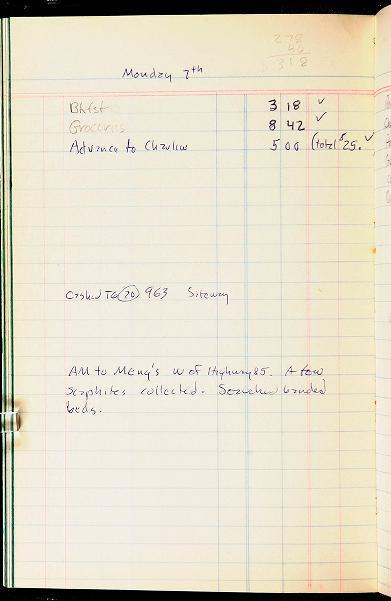 278
40
318
Monday 7th
Bkfst 3 18 ✓
Groceries 8 42 ✓
Advance to Charlie 5 00 (total $25. ✓
Cashed TC (20) 963 Safeway
AM to Meng's W of Highway 85. A few
scaphites collected. Searched banded
beds.